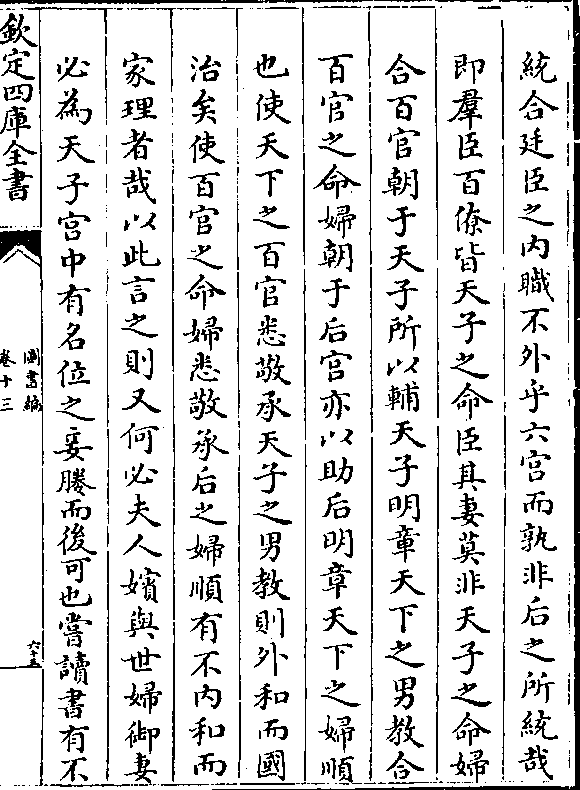 統合廷臣之内職不外乎六宫而孰非后之所統哉
即羣臣百僚皆天子之命臣其妻莫非天子之命婦
合百官朝于天子所以輔天子明章天下之男教合
百官之命婦朝于后宫亦以助后明章天下之婦順
也使天下之百官悉敬承天子之男教則外和而國
治矣使百官之命婦悉敬承后之婦順有不内和而
家理者哉以此言之則又何必夫人嬪與世婦御妻
必為天子宫中有名位之妾媵而後可也嘗讀書有不
欽定四庫全書
圖書編
卷十三
六十五